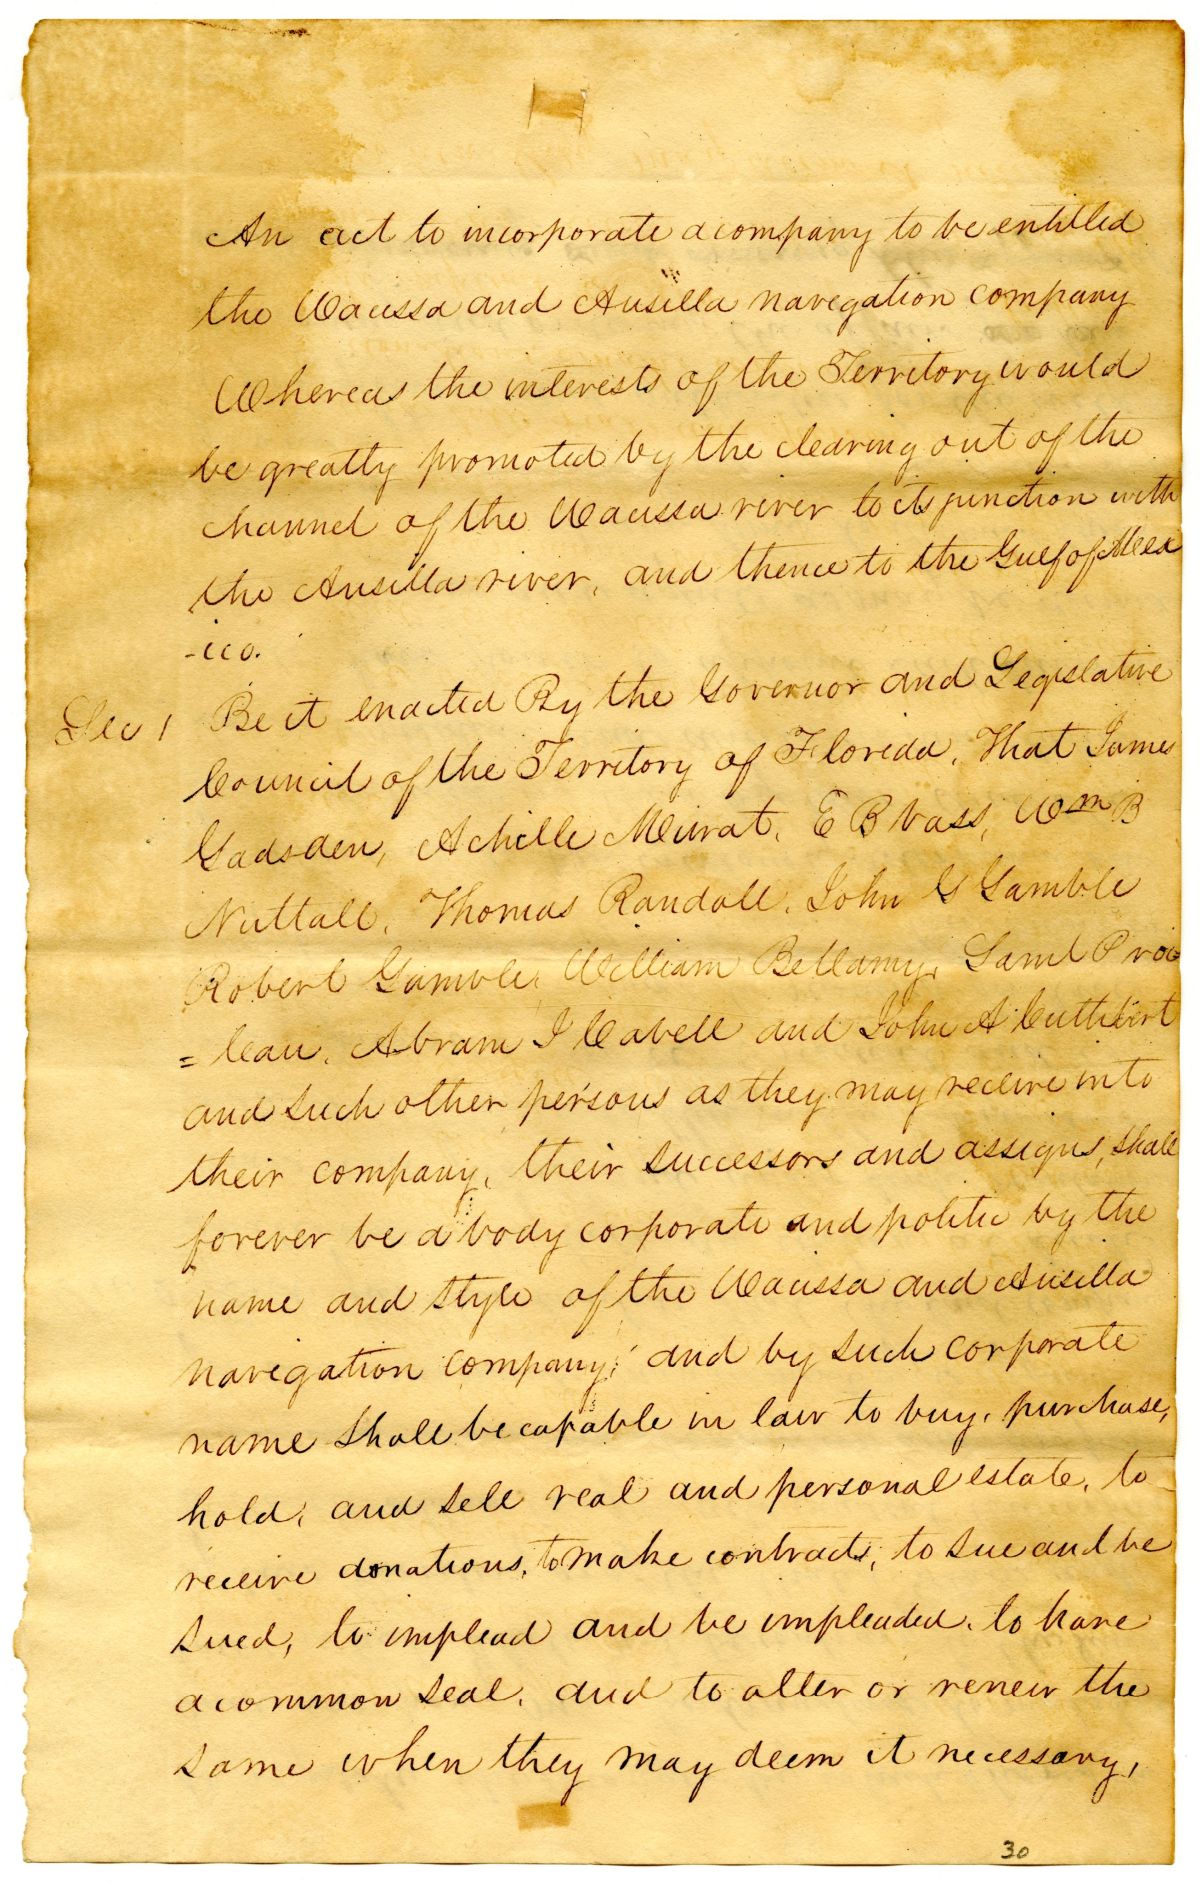 An act to incorporate a company to be entitled
the Wacissa and Ausilla navegation company
Whereas the interests of the Territory would
be greatly promoted by the clearing out of the
channel of the Wacissa river to its junction with
the Ausilla river, and thence to the Gulf of Mex
-ico.
Sec 1 Be it enacted By the Governor and Legislative
Council of the Territory of Florida, That James
Gadsden, Achille Murat, E B Vass, Wm B
Nuttall, Thomas Randall, John G Gamble
Robert Gamble, William Bellamy, Saml Prio
=leau, Abram I Cabell and John A Cuthbert
and such other persons as they may receive into
their company, their successors and assigns, shall
forever be a body corporate and politic by the
name and style of the Wacissa and Ausilla
navigation company, and by such corporate
name shall be capable in law to buy, purchase,
hold, and sell real and personal estate, to
receive donations, to make contracts, to sue and be
sued, to implead and be impleaded, to have
a common seal, and to alter or renew the
same when they may deem it necessary,
30